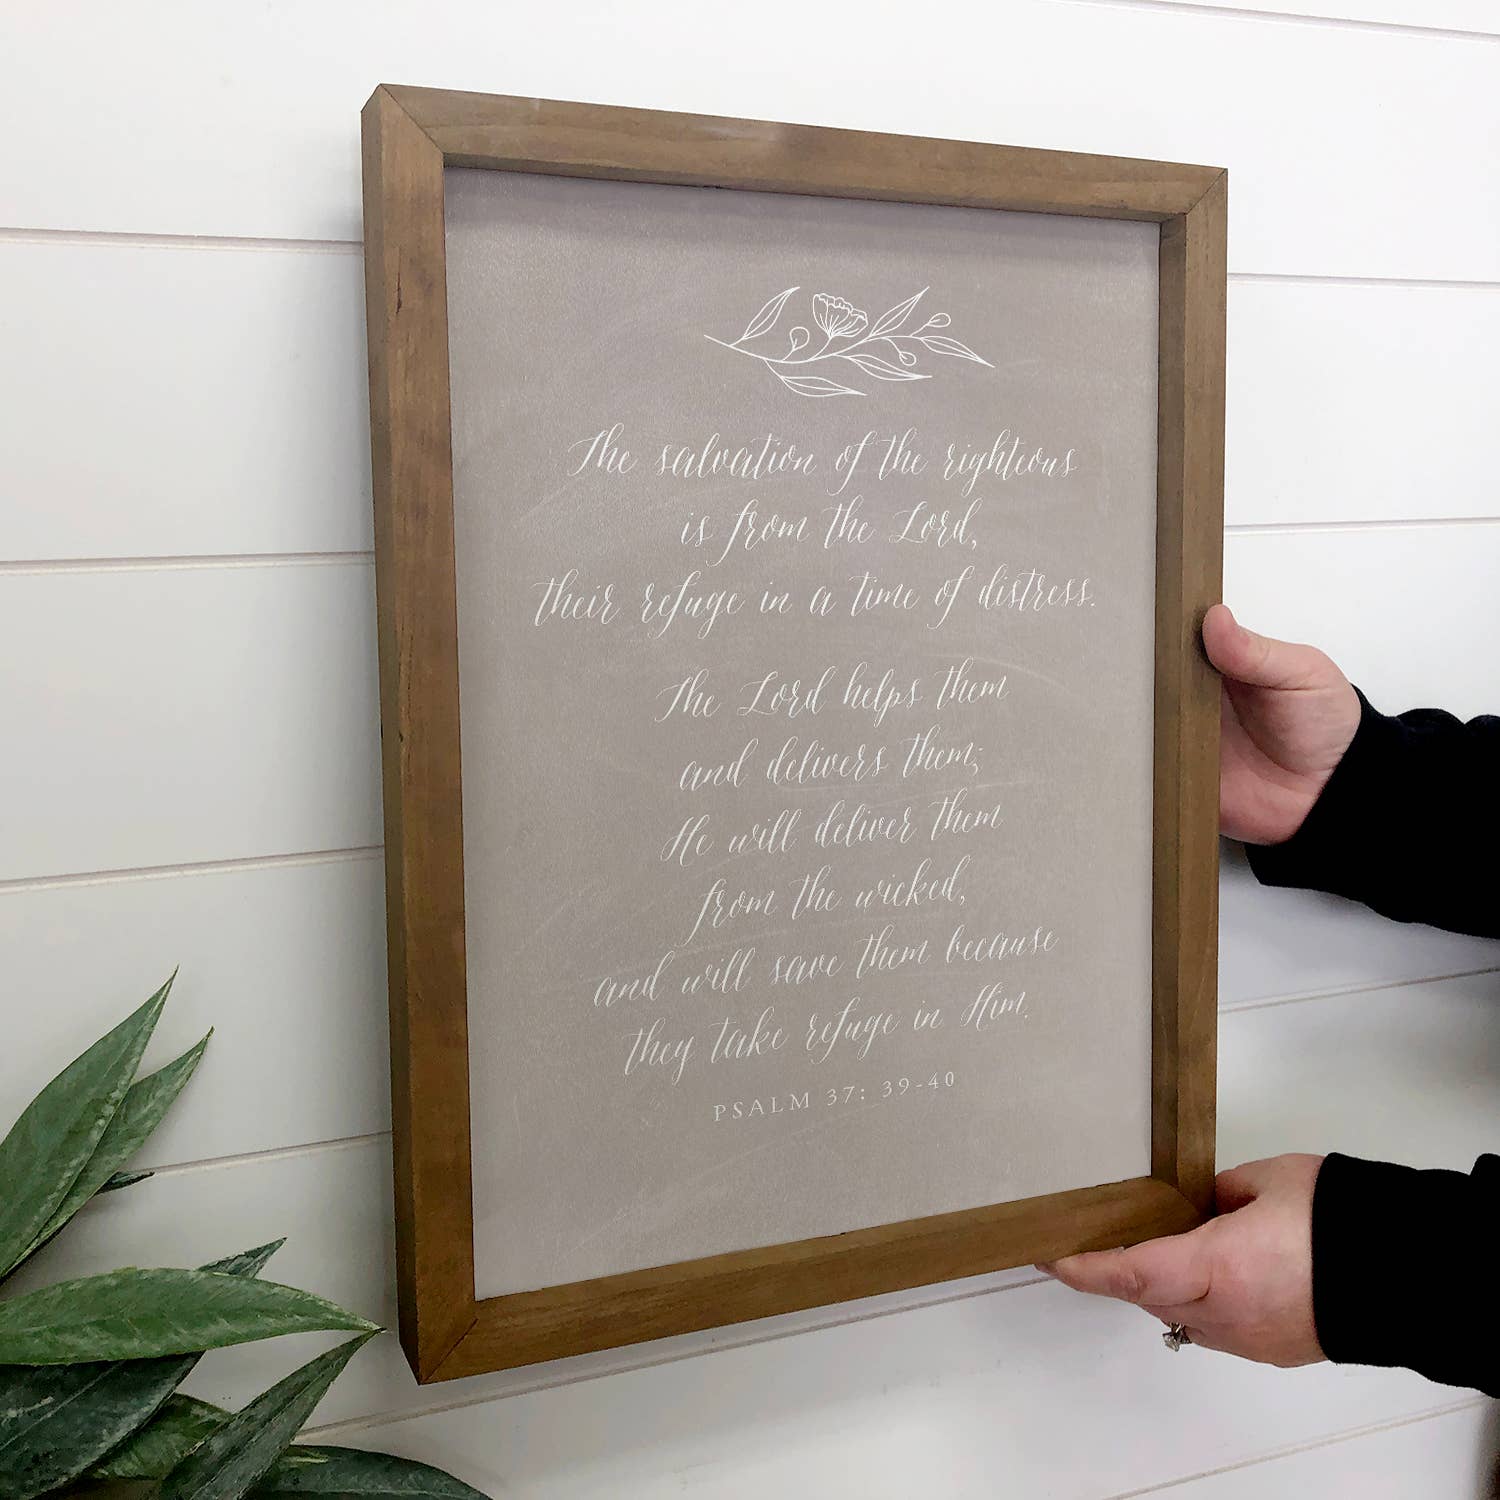 The salvation of the righteous
is from the Lord,
their refuge in a time of distress.
The Lord helps them
and delivers them;
He will deliver them
from the wicked,
and will save them because
they take refuge in Him.
PSALM 37: 39-40